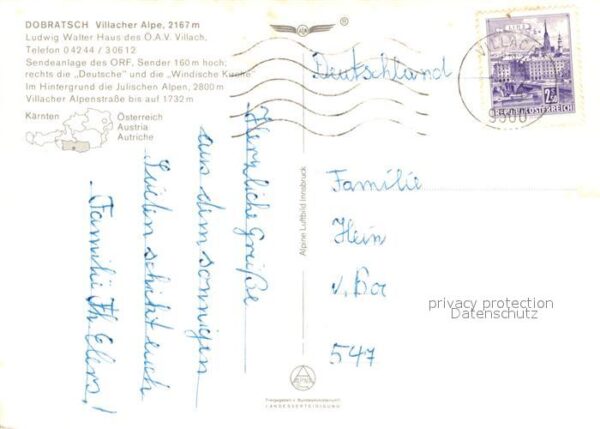 DOBRATSCH Villacher Alpe, 2167 m
Ludwig Walter Haus des Ö.A.V. Villach,
Telefon 0 42 44 / 3 06 12
Sendeanlage des ORF, Sender 160 m hoch;
rechts die „Deutsche" und die „Windische Kirche"
Im Hintergrund die Julischen Alpen, 2800 m
Villacher Alpenstraße bis auf 1732 m
Kärnten
Österreich
Austria
Autriche
Herzliche Grüße
aus dem sonnigen
Süden schickt euch
Familie Th. Elers!
Alpine Luftbild Innsbruck
ALPINE
Freigegeben v. Bundesministerium f.
LANDESVERTEIDIGUNG
®
VILLACH
9500
LINZ
2S
REPUBLIK ÖSTERREICH
Deutschland
Familie
Hein
547
privacy protection
Datenschutz